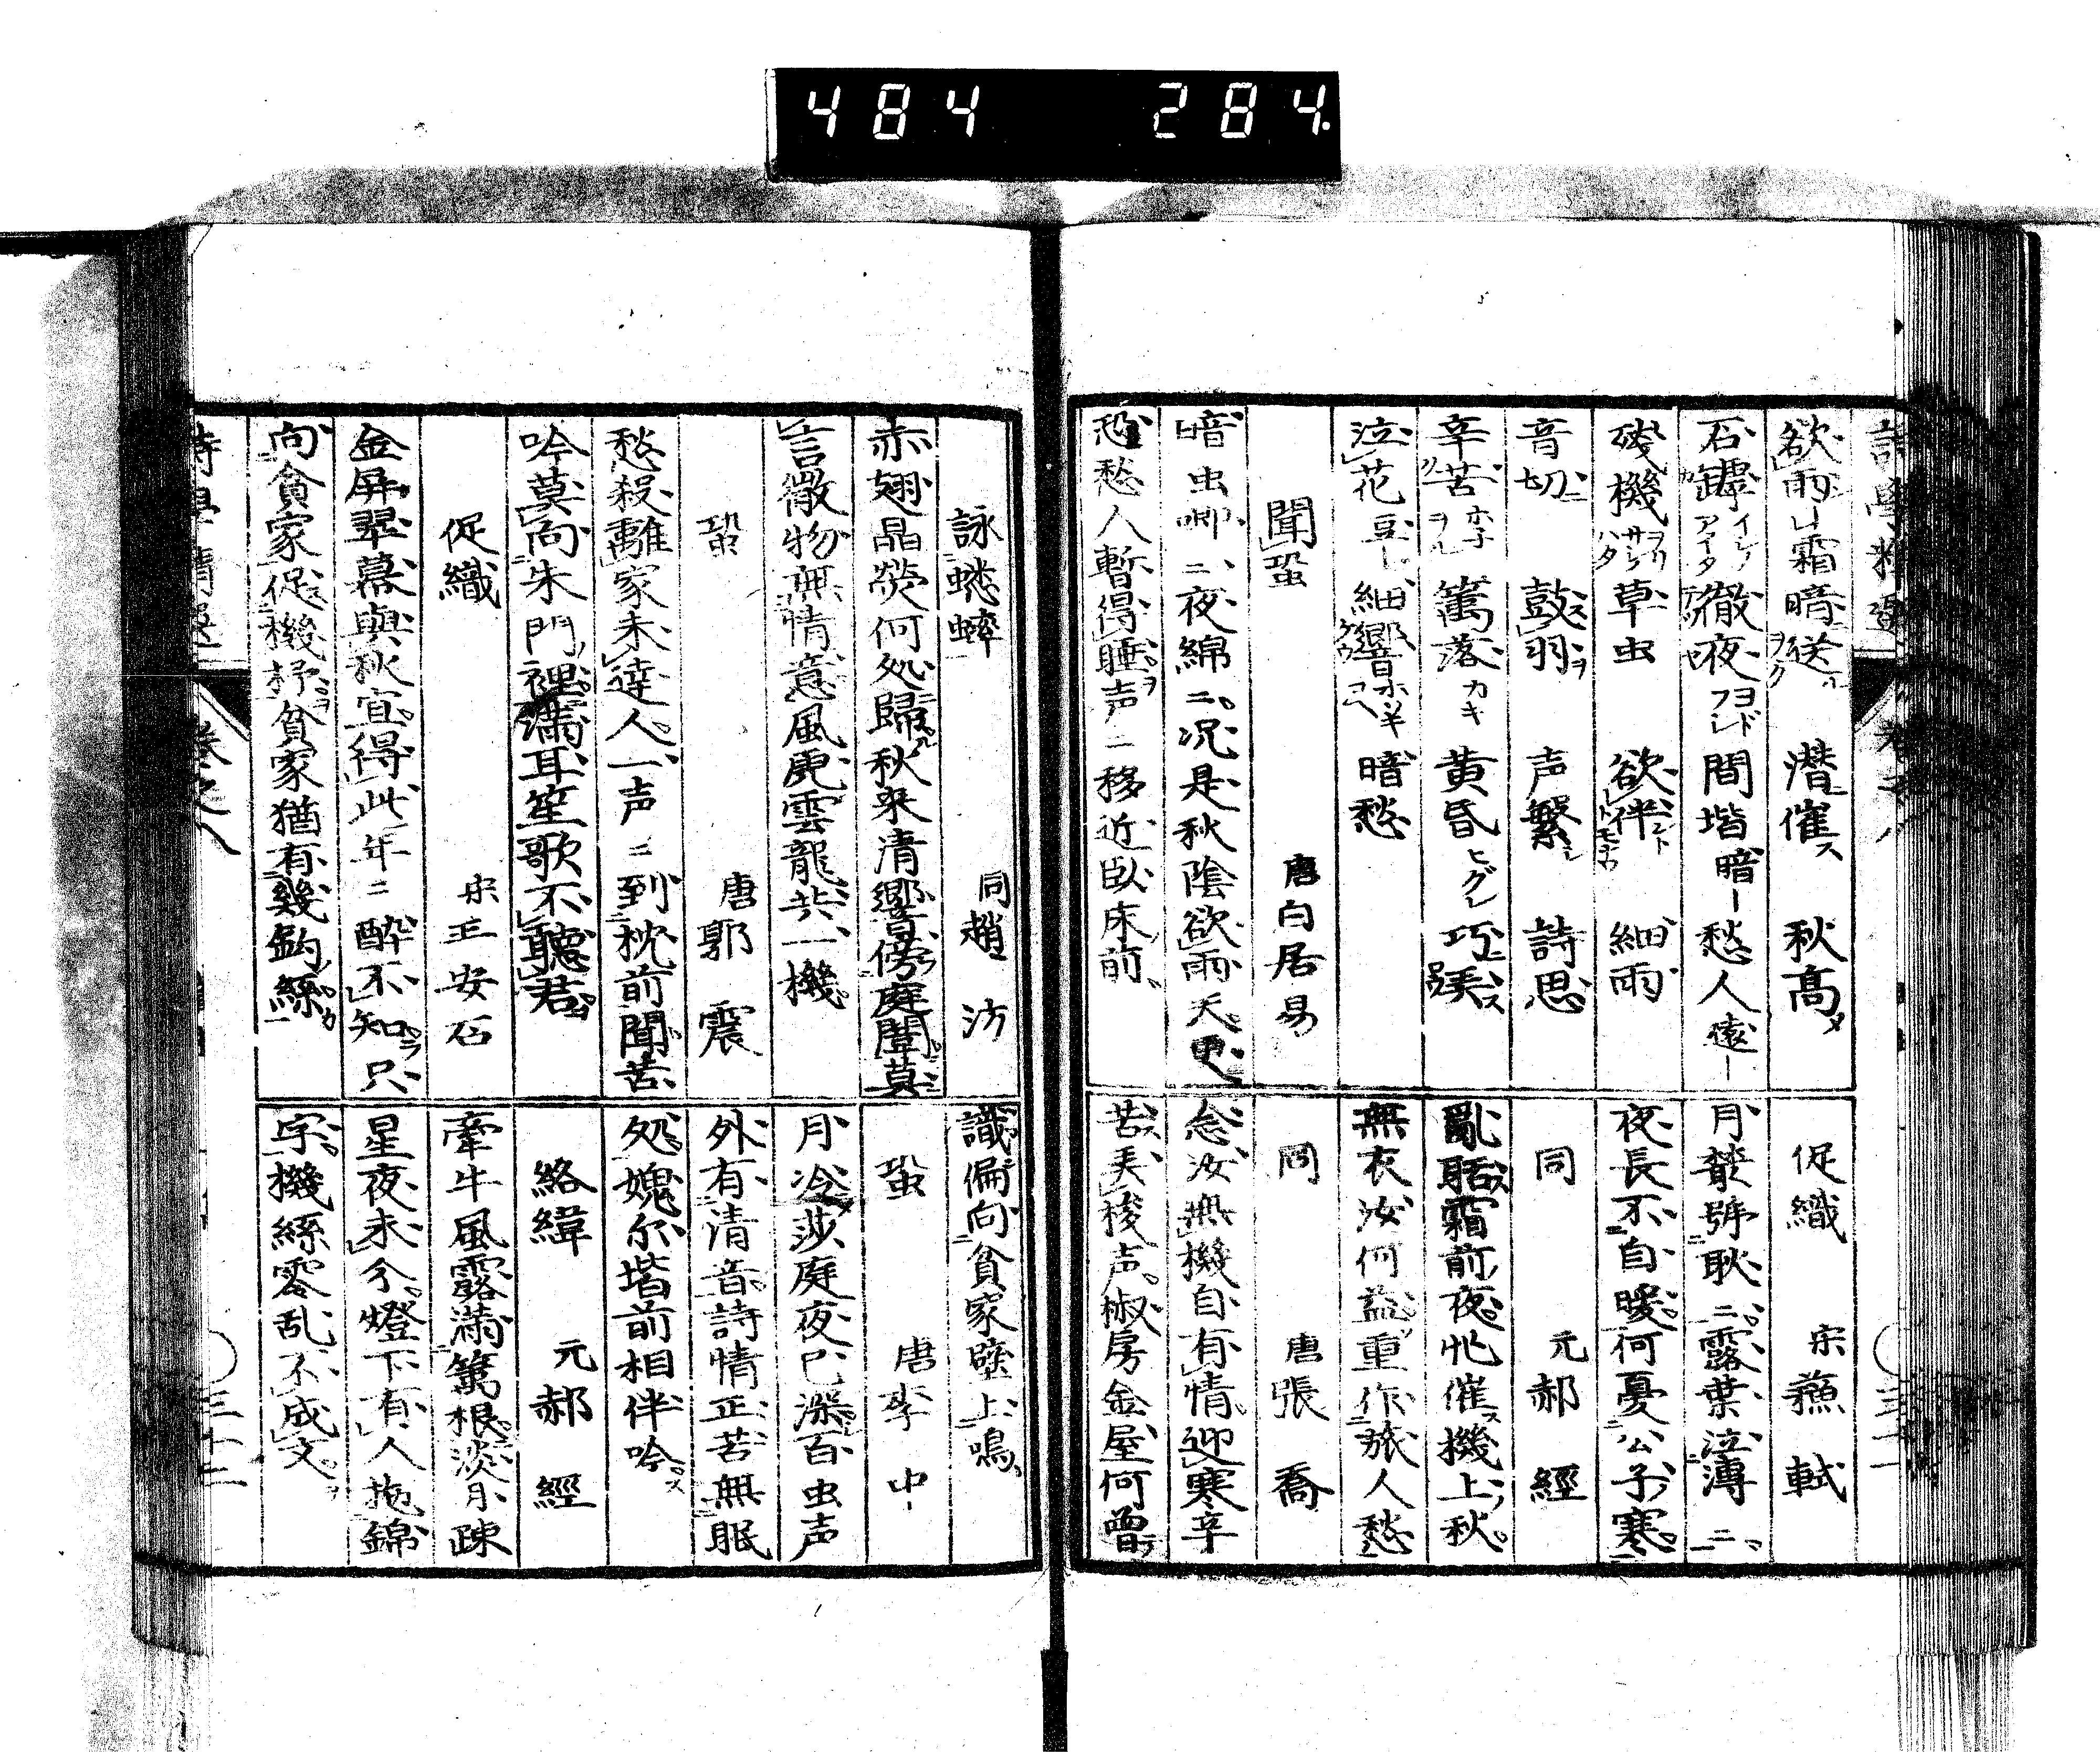 484 284.
欲雨 霜暗送 潜催 秋高
石罅 徹夜 間堦暗 愁人遠
残機 草虫 欲伴 細雨
音切 鼓羽 声繁 詩思
辛苦 籬落 黄昏
泣花豆 細響 暗愁
聞蛩 唐白居易
暗虫喞ニ夜綿ニ况是秋陰欲雨天更
恐愁人暫得睡声ニ移近臥床前
促織 宋蘓軾
月叢號耿ニ露葉泣漙ニ
夜長不自暖何憂公子寒
同 元郝經
亂聒霜前夜忙催機上秋
無衣汝何益重作旅人愁
同 唐張喬
念汝無機自有情迎寒辛
苦美梭声椒房金屋何曽
詠蟋蟀 同趙汸
赤翅晶熒何処歸秋来清響傍庭闈莫
言微物無情意風虎雲龍共一機
蛩 唐郭震
愁殺離家未達人一声ニ到枕前聞苦
吟莫向朱門裡満耳笙歌不聽君
促織 宋王安石
金屏翠幕與秋宜得此年ニ醉不知只
向貧家促機杼貧家猶有幾鈎絲
識偏向貧家壁上鳴
蛩 唐李中
月冷莎庭夜已深百虫声
外有清音詩情正苦無眠
処媿尓堦前相伴吟
絡緯 元郝經
牽牛風露満籬根淡月疎
星夜未分燈下有人抛錦
字機絲零乱不成文